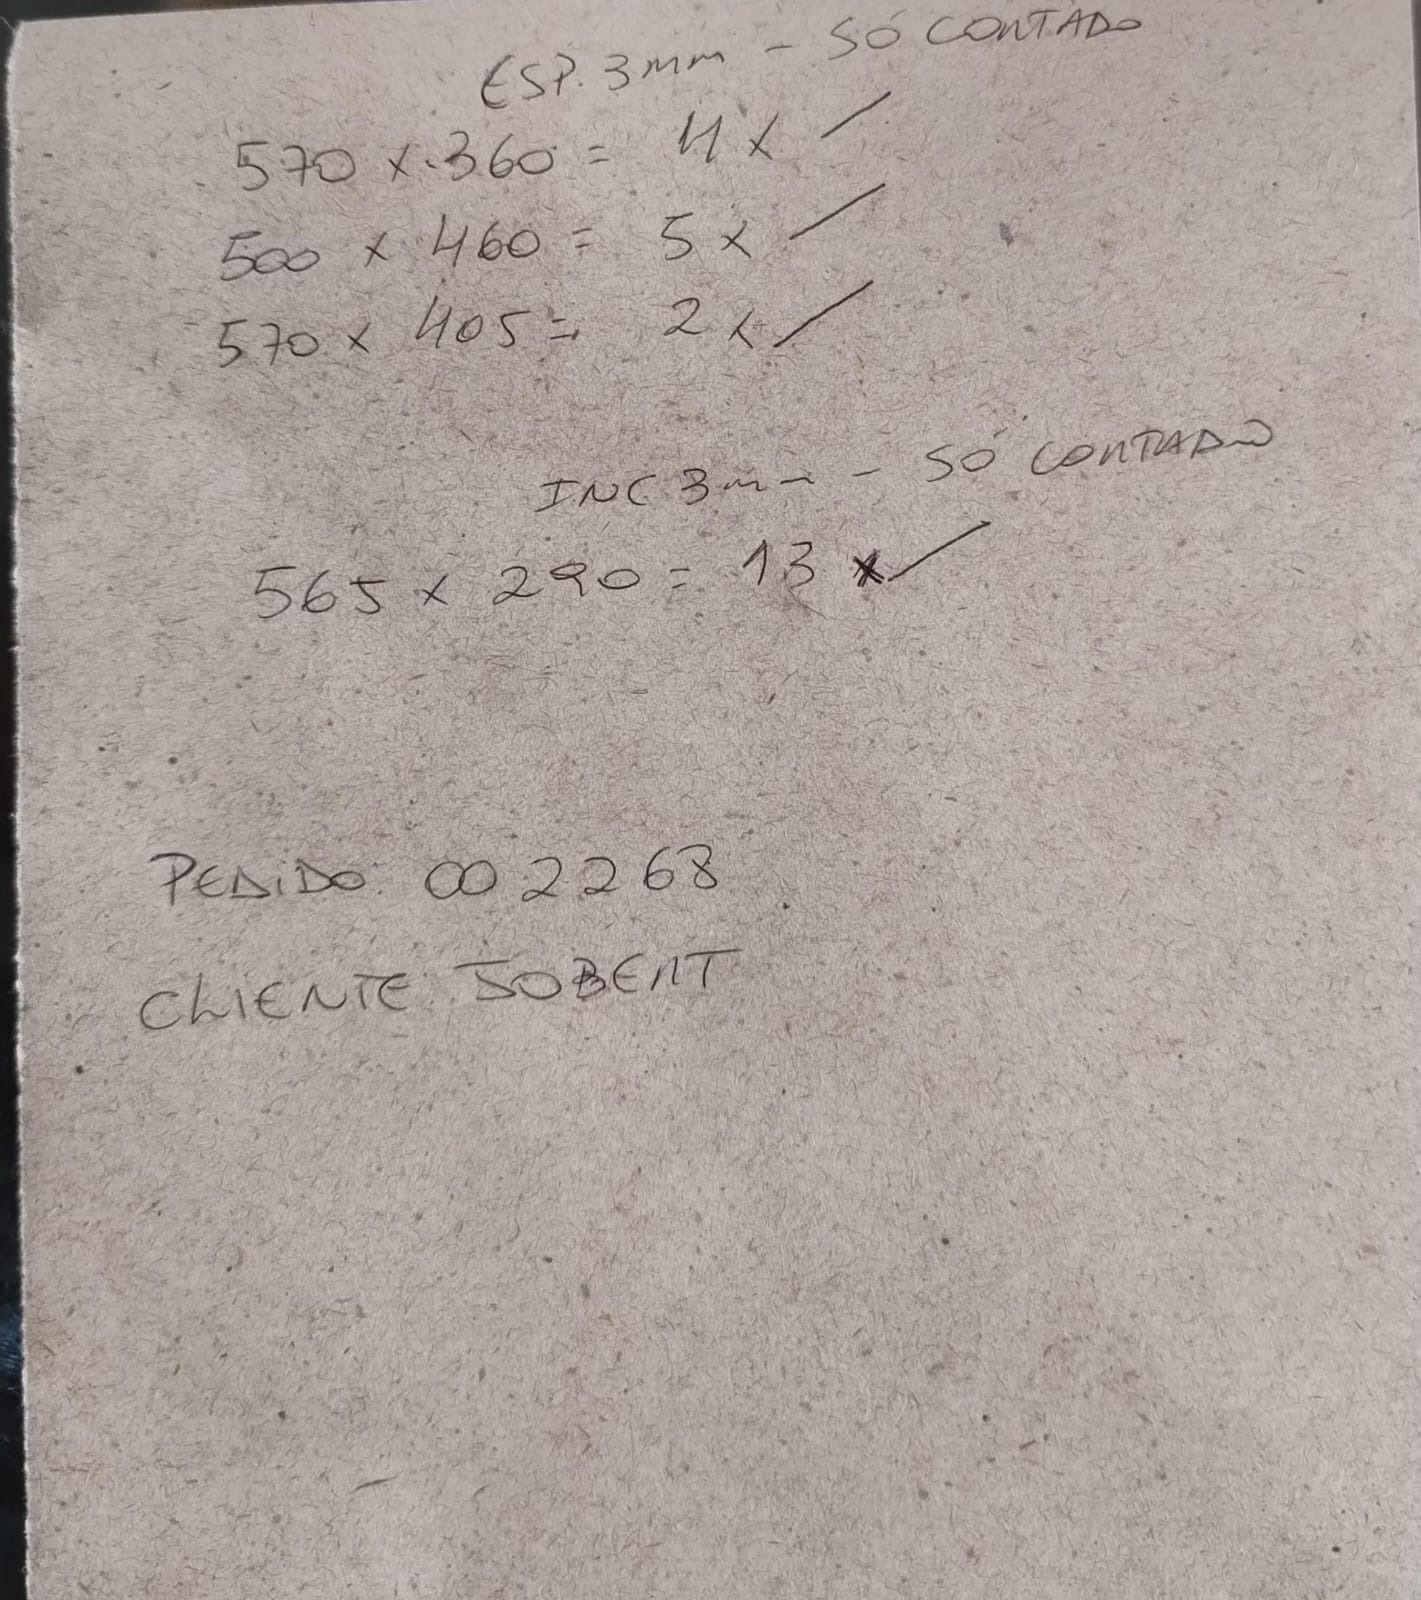 ESP. 3mm - SÓ CORTADO
570 x 360 = 4x
500 x 460 = 5x
570 x 405 = 2x
INC 3mm - SÓ CORTADO
565 x 290 = 13 x
PEDIDO: 002268
CLIENTE: JOBERT